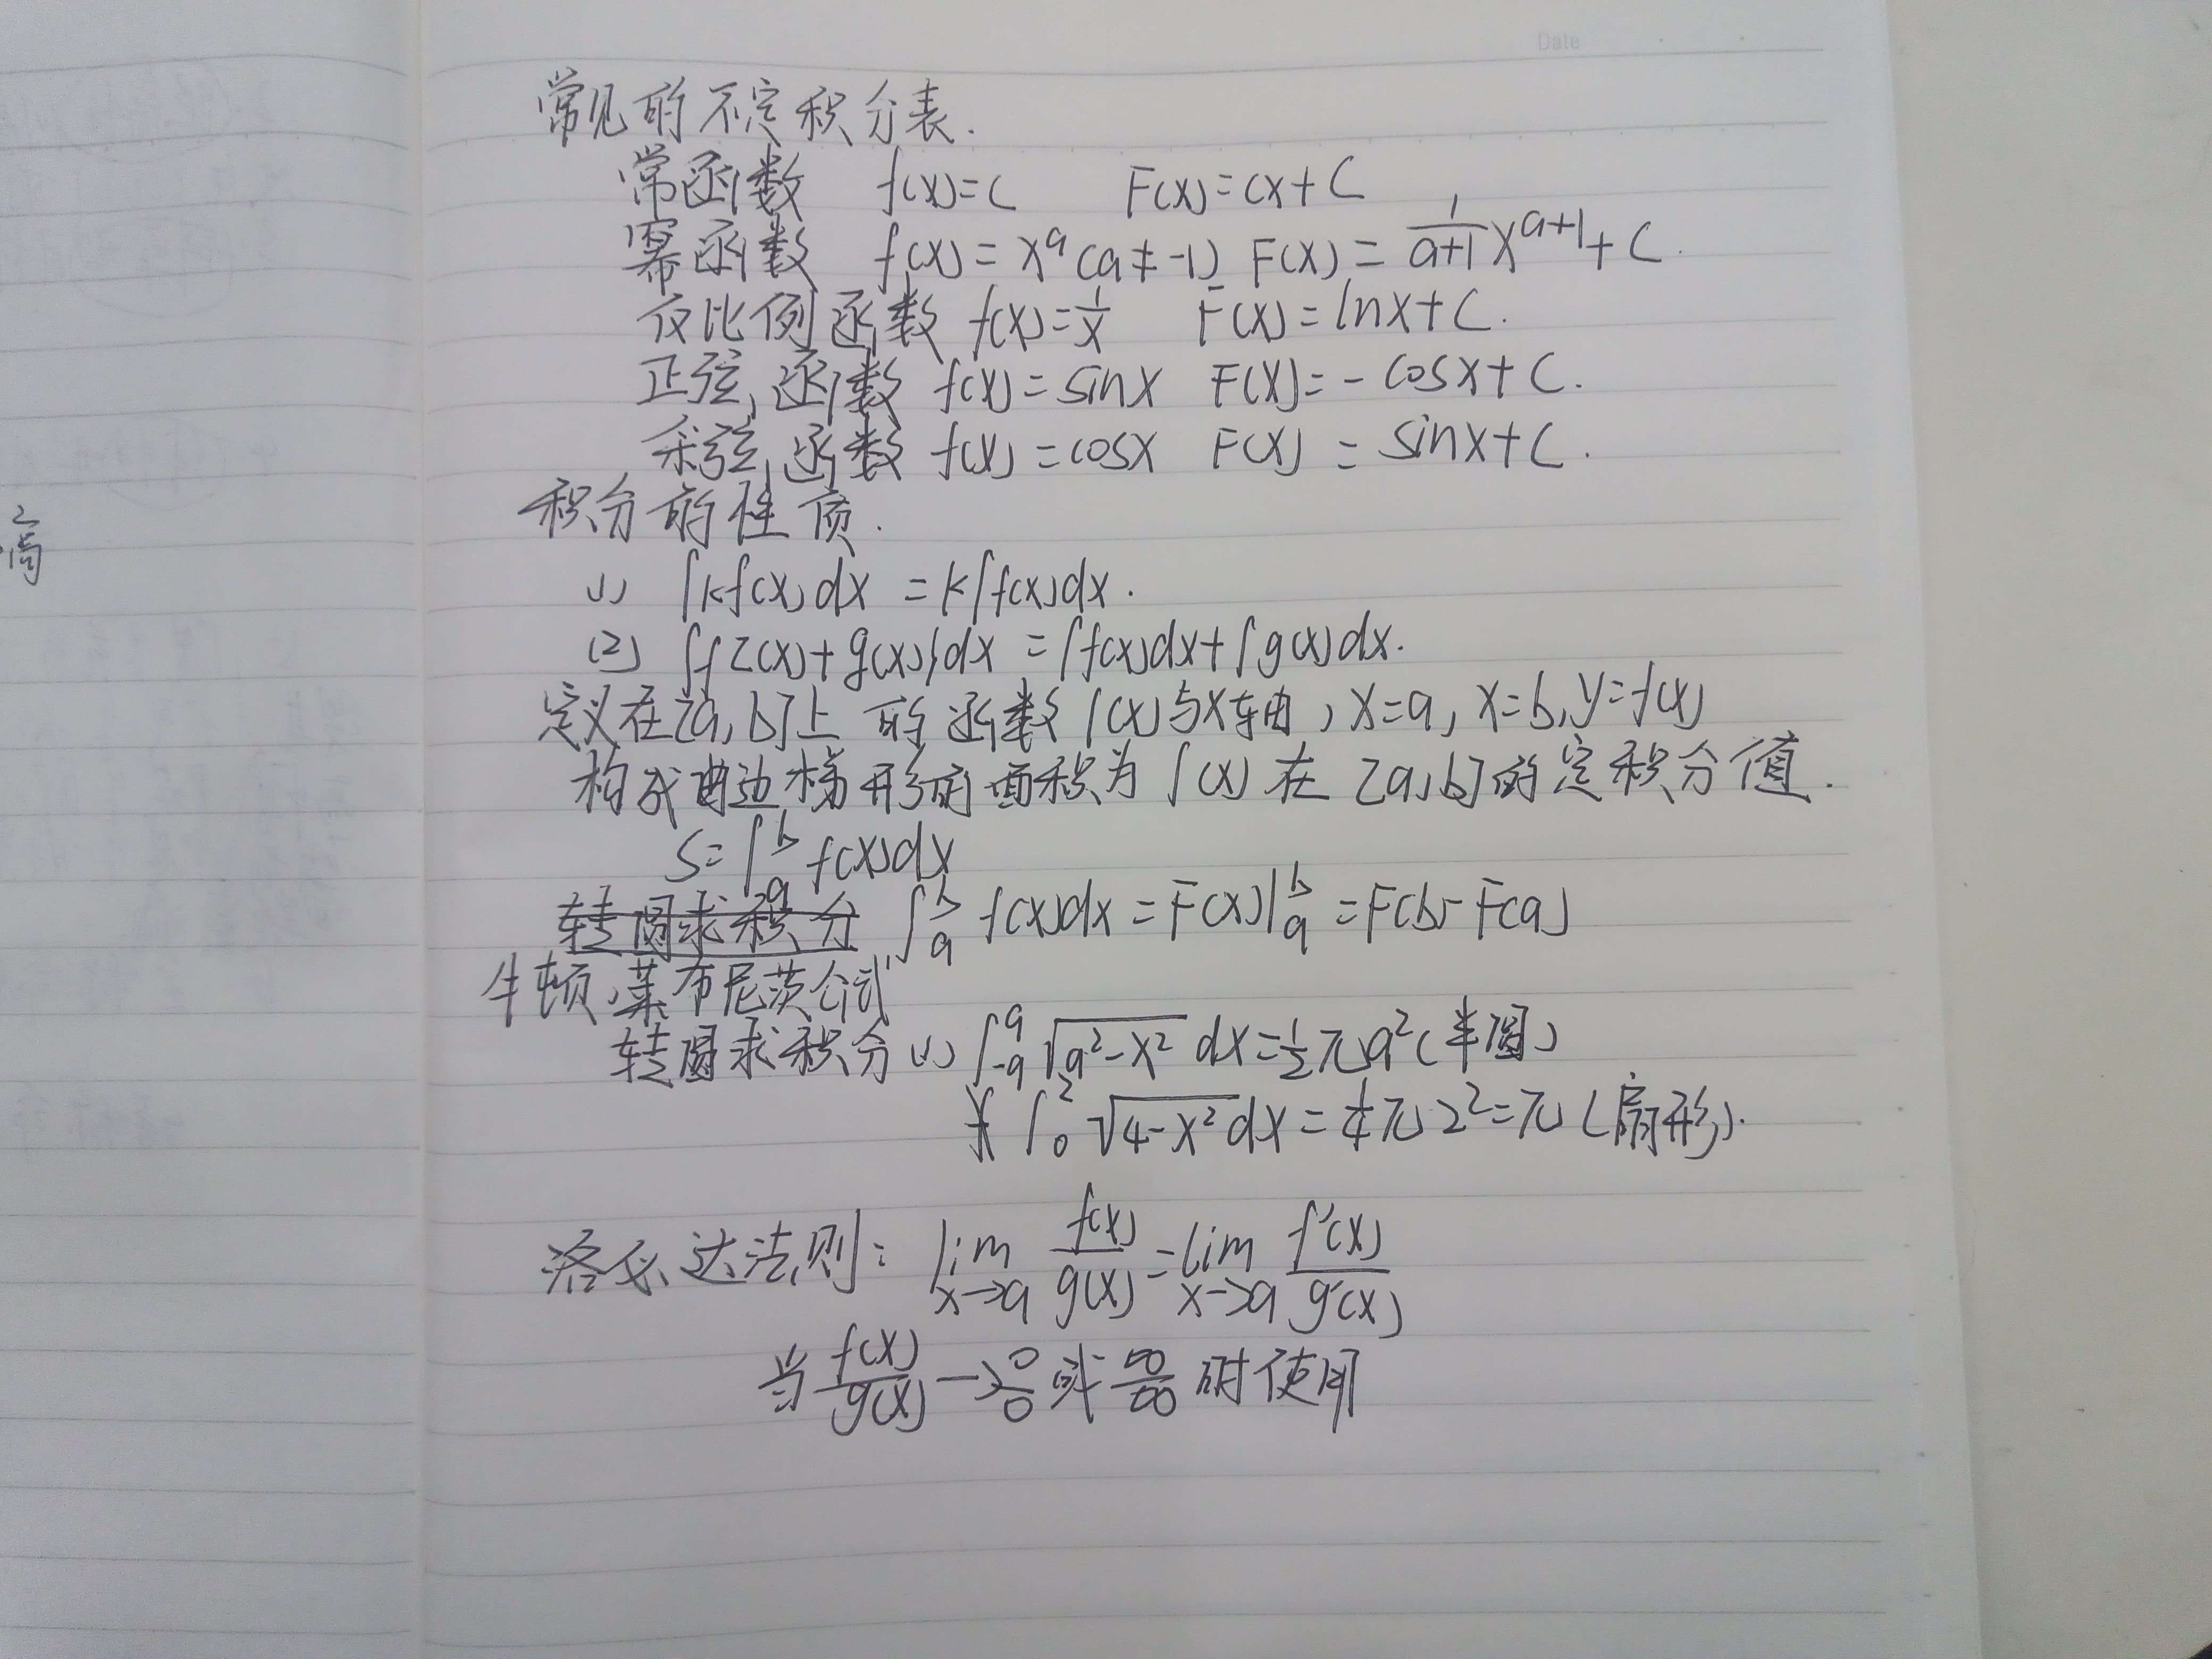 Date
常见的不定积分表.
常函数 f(x)=C F(x)=Cx+C
幂函数 f(x)=x^a(a≠-1) F(x)=1/(a+1) x^(a+1)+C.
反比例函数 f(x)=1/x F(x)=lnx+C.
正弦函数 f(x)=sinx F(x)=-cosx+C.
余弦函数 f(x)=cosx F(x)=sinx+C.
积分的性质.
(1) ∫kf(x)dx=k∫f(x)dx.
(2) ∫f[(x)+g(x)]dx=∫f(x)dx+∫g(x)dx.
定义在[a,b]上的函数f(x)与x轴,x=a,x=b,y=f(x)
构成曲边梯形的面积为f(x)在[a,b]的定积分值.
S=∫_a^b f(x)dx
转圆求积分 ∫_a^b f(x)dx=F(x)|_a^b=F(b)-F(a)
牛顿,莱布尼茨公式
转圆求积分(1) ∫_-a^a √(a²-x²) dx=1/2πa²(半圆)
∫_0^2 √(4-x²) dx=1/4π2²=π(扇形).
洛必达法则: lim x→a f(x)/g(x)=lim x→a f'(x)/g'(x)
当f(x)/g(x)→0/0或∞/∞时使用
高